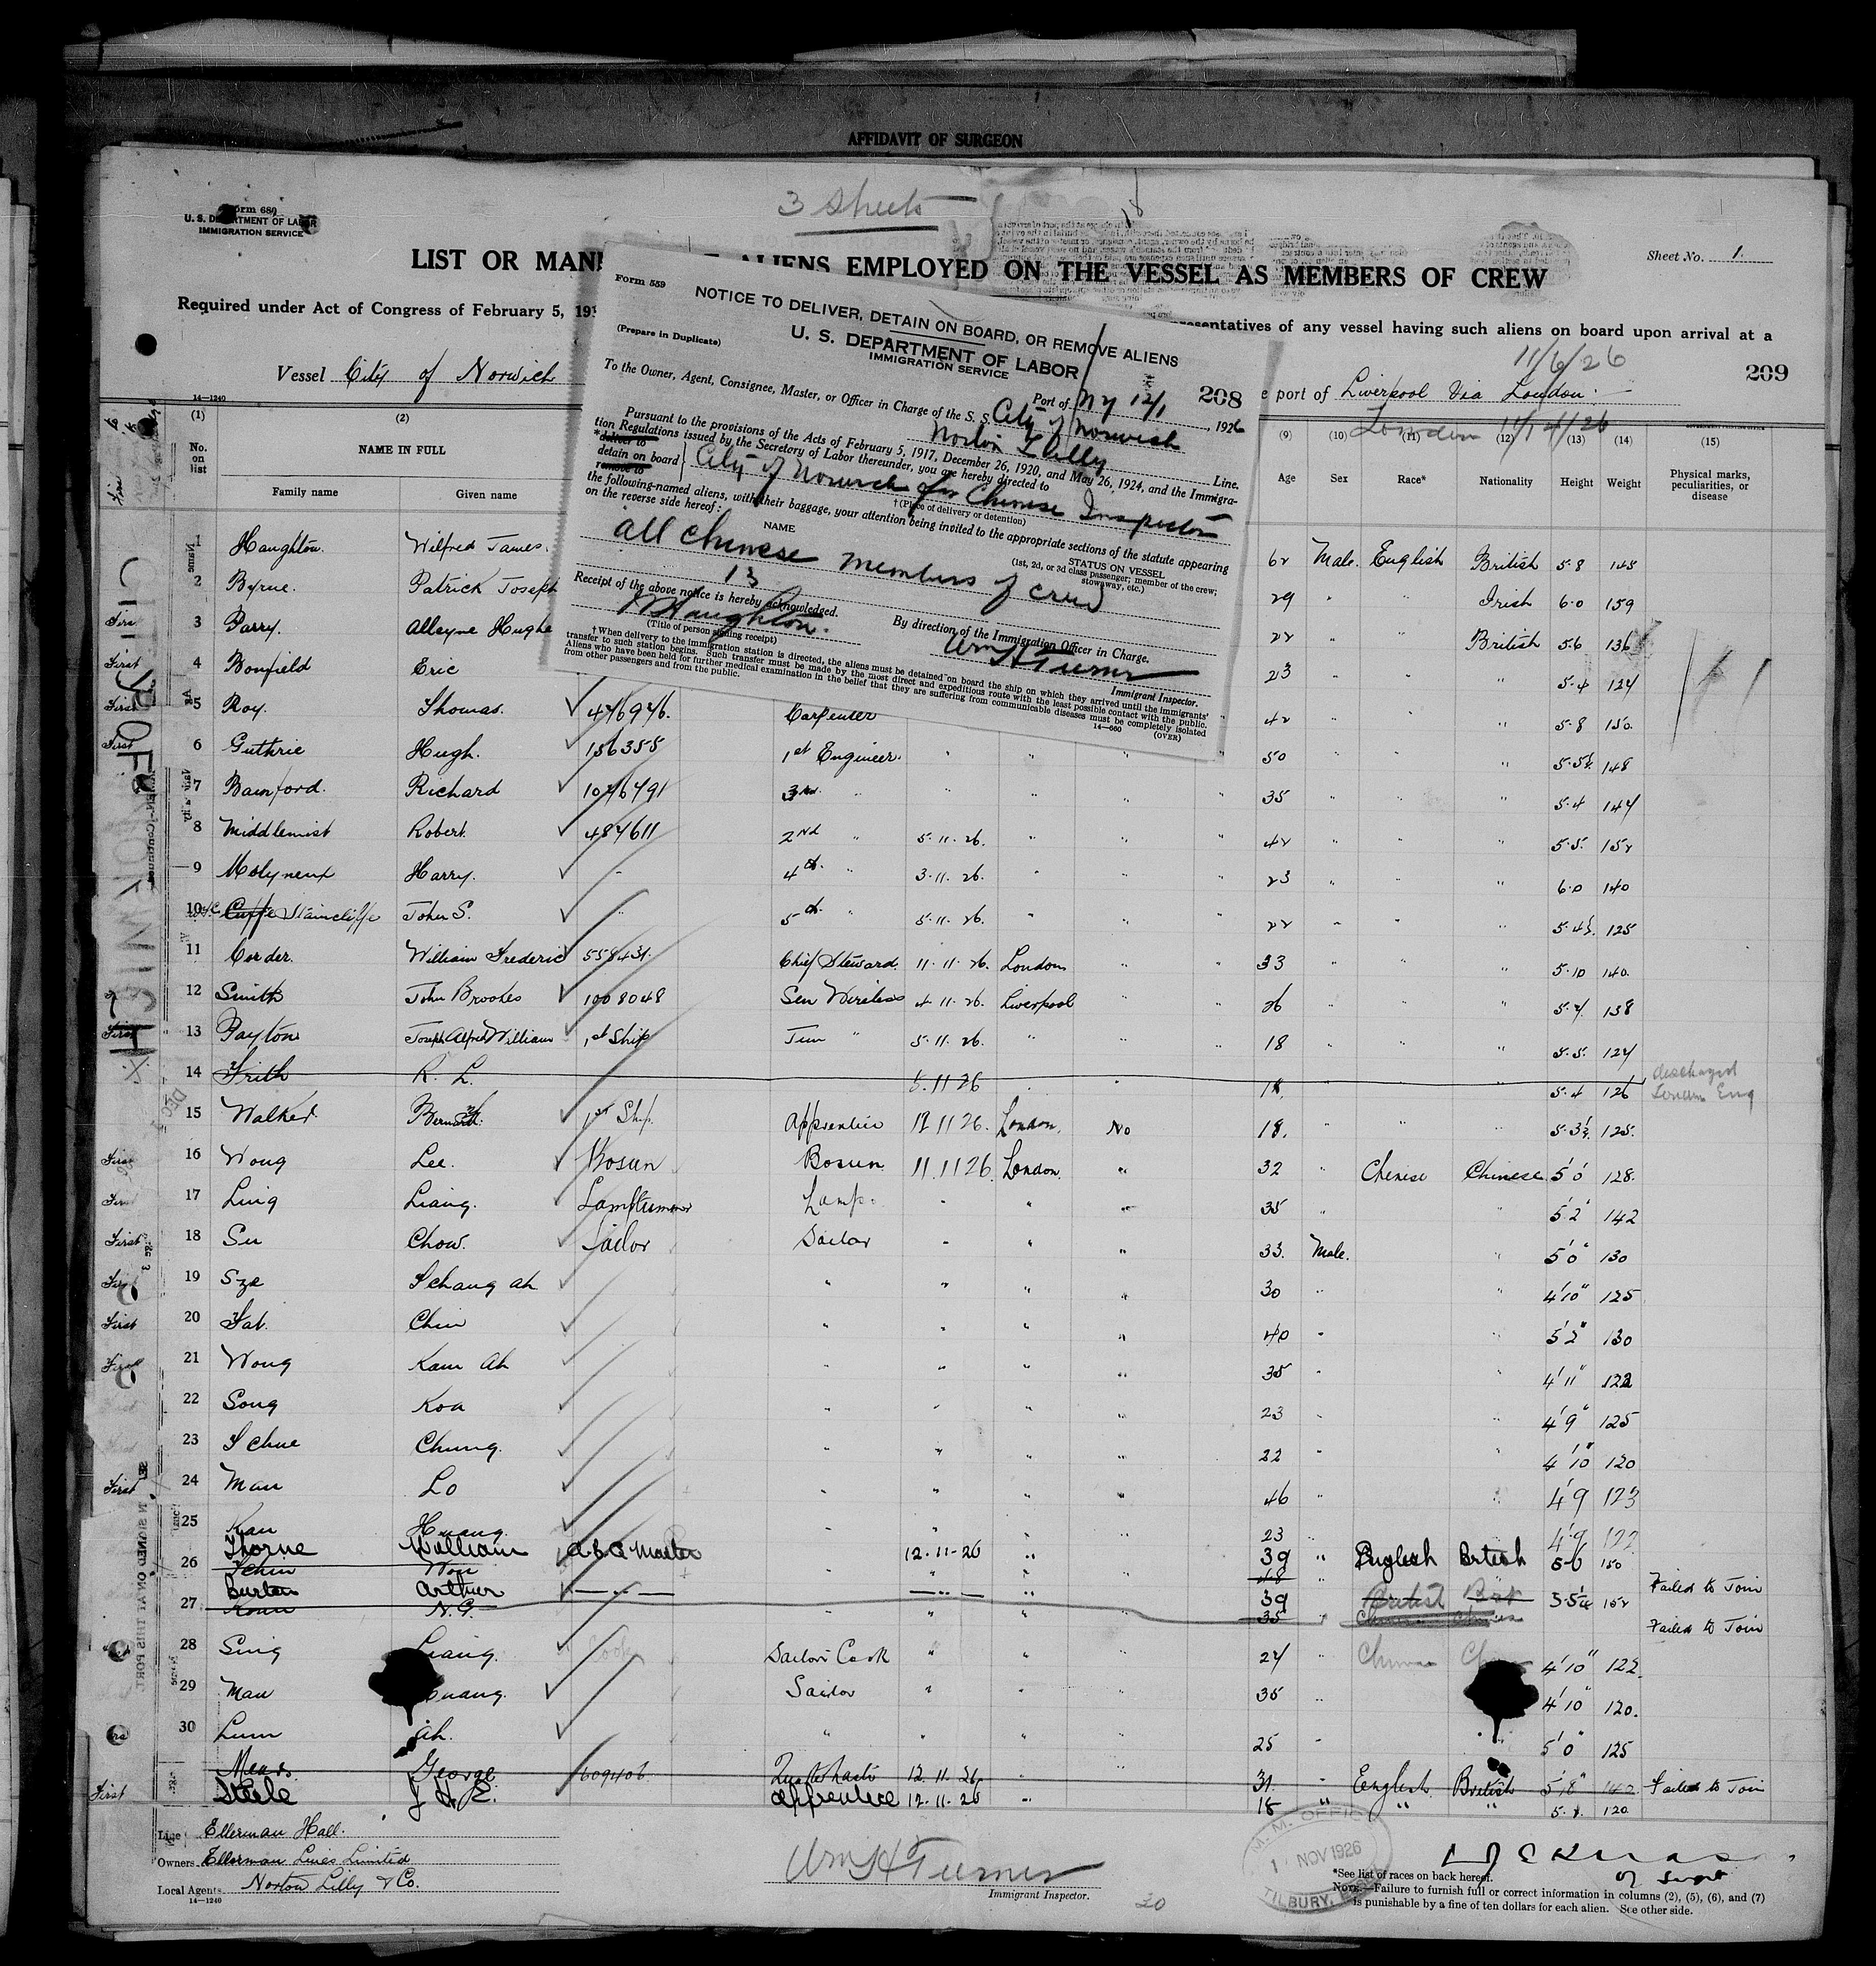 AFFIDAVIT OF SURGEON
3 Sheets
Form 689
U. S. DEPARTMENT OF LABOR
IMMIGRATION SERVICE
Sheet No. 1.
LIST OR MANI ALIENS EMPLOYED ON THE VESSEL AS MEMBERS OF CREW
Required under Act of Congress of February 5, 191 resentatives of any vessel having such aliens on board upon arrival at a
11/6/26
209
Vessel City of Norwich e port of Liverpool Via London.
London 11/14/26
14—1240
Form 559
NOTICE TO DELIVER, DETAIN ON BOARD, OR REMOVE ALIENS
(Prepare in Duplicate)
U. S. DEPARTMENT OF LABOR
IMMIGRATION SERVICE
208
Port of NY 12/1, 1926
To the Owner, Agent, Consignee, Master, or Officer in Charge of the S. S. City of Norwich
Norton Lilly Line.
Pursuant to the provisions of the Acts of February 5, 1917, December 26, 1920, and May 26, 1924, and the Immigra-
tion Regulations issued by the Secretary of Labor thereunder, you are hereby directed to
*deliver to
detain on board City of Norwich for Chinese Inspector
remove to
†(Place of delivery or detention)
the following-named aliens, with their baggage, your attention being invited to the appropriate sections of the statute appearing
on the reverse side hereof:
NAME STATUS ON VESSEL
(1st, 2d, or 3d class passenger; member of the crew; stowaway, etc.)
all Chinese members of crew
13
Receipt of the above notice is hereby acknowledged.
WHaughton.
(Title of person signing receipt)
By direction of the Immigration Officer in Charge.
Wm H Turner
Immigrant Inspector.
†When delivery to the immigration station is directed, the aliens must be detained on board the ship on which they arrived until the immigrants'
transfer to such station begins. Such transfer must be made by the most direct and expeditious route with the least possible contact with the public.
Aliens who have been held for further medical examination in the belief that they are suffering from communicable diseases must be completely isolated
from other passengers and from the public.
14—660 (OVER)
(1) (2) (9) (10) (11) (12) (13) (14) (15)
No. on list NAME IN FULL Age Sex Race* Nationality Height Weight Physical marks, peculiarities, or disease
Family name Given name
CITY OF NORWICH
1 Haughton. Wilfred James. 62 Male. English British 5·8 145
2 Byrne. Patrick Joseph 29 " " Irish 6·0 159
First 3 Parry. Alleyne Hughe 22 " " British 5·6 136
First 4 Bonfield Eric 23 " " " 5·4 124
First 5 Roy. Thomas. 446946. Carpenter 42 " " " 5·8 150
First 6 Guthrie Hugh. 156355 1st Engineer. 50 " 5·5½ 148
7 Bamford. Richard 1046491 3rd " 35 " " " 5·4 144
8 Middlemist Robert. 484611 2nd " 5·11·26. " " " 42 " " " 5·5. 152
9 Molyneux Harry. - 4th " 3·11·26. " " " 23 " " " 6·0 140
10 Cuffe Staincliffe John S. " 5th " 5·11·26. " " " 22 " " " 5·4½ 125
11 Corder. William Frederic 558431. Chief Steward. 11·11·26. London " " 33 " " " 5·10 140
12 Smith John Brookes 1008048 Sen Wireless 4·11·26. Liverpool " " 26 " " " 5·7. 138
First 13 Payton Joseph Alfred William 1st Ship Jun " 5·11·26. " " " 18 " " " 5·5. 124
14 Frith R. L. 5.11 26 18. 5·4 126 discharged London Eng
15 Walker Bernard. 1st Ship. Apprentice 12 11 26. London. No 18. " " " 5·3½ 125.
First 16 Wong Lee. Bosun Bosun 11.11 26. London " 32 " Chinese Chinese 5'0" 128.
First 17 Ling Liang. Lamptrimmer Lamp. " " " 35 " " 5'2" 142
First 18 Su Chow. Sailor Sailor " " " 33. Male. " 5'0" 130
First 19 Sze Schang ah " " " " 30 " " 4'10" 125
First 20 Fat. Chin " " " " 40 " " 5'2" 130
First 21 Wong Kam Ah " " " " 35 " " 4'11" 122
22 Song Koa " " " " 23 " " 4'9" 125
23 Schue Chung. " " " " 22 " " 4'10" 120
First 24 Man Lo " " " " 46 " " 4'9 123
25 Kan Huang. " " " 23 4'9 122
Thorne William 12·11·26 " 39 " English British 5·6 150
26 Schin Won " " 48 " Failed to Join
Burton Arthur 39 British 5·5¼ 152
27 N.G. " " 35 " Chinese Failed to Join
28 Sing Liang. Cook Sailors Cook " 24 " 4'10" 122.
29 Man Huang. Sailor " " " 35 " 4'10" 120.
30 Lum Ah. " " " " 25 " 5'0" 125
Mears George 609406 12.11.26 " 31. " English British 5'8" 142 Failed to Join
First Steele J. H. E. apprentice 12·11·26 " 18 " " " 5·8. 120
Line Ellerman Hall.
Owners Ellerman Lines Limited
Local Agents Norton Lilly & Co.
14—1240
Wm H Turner
Immigrant Inspector.
20
M. M. OFFICE
1 NOV 1926
TILBURY,
*See list of races on back hereof.
NOTE.—Failure to furnish full or correct information in columns (2), (5), (6), and (7)
is punishable by a fine of ten dollars for each alien. See other side.